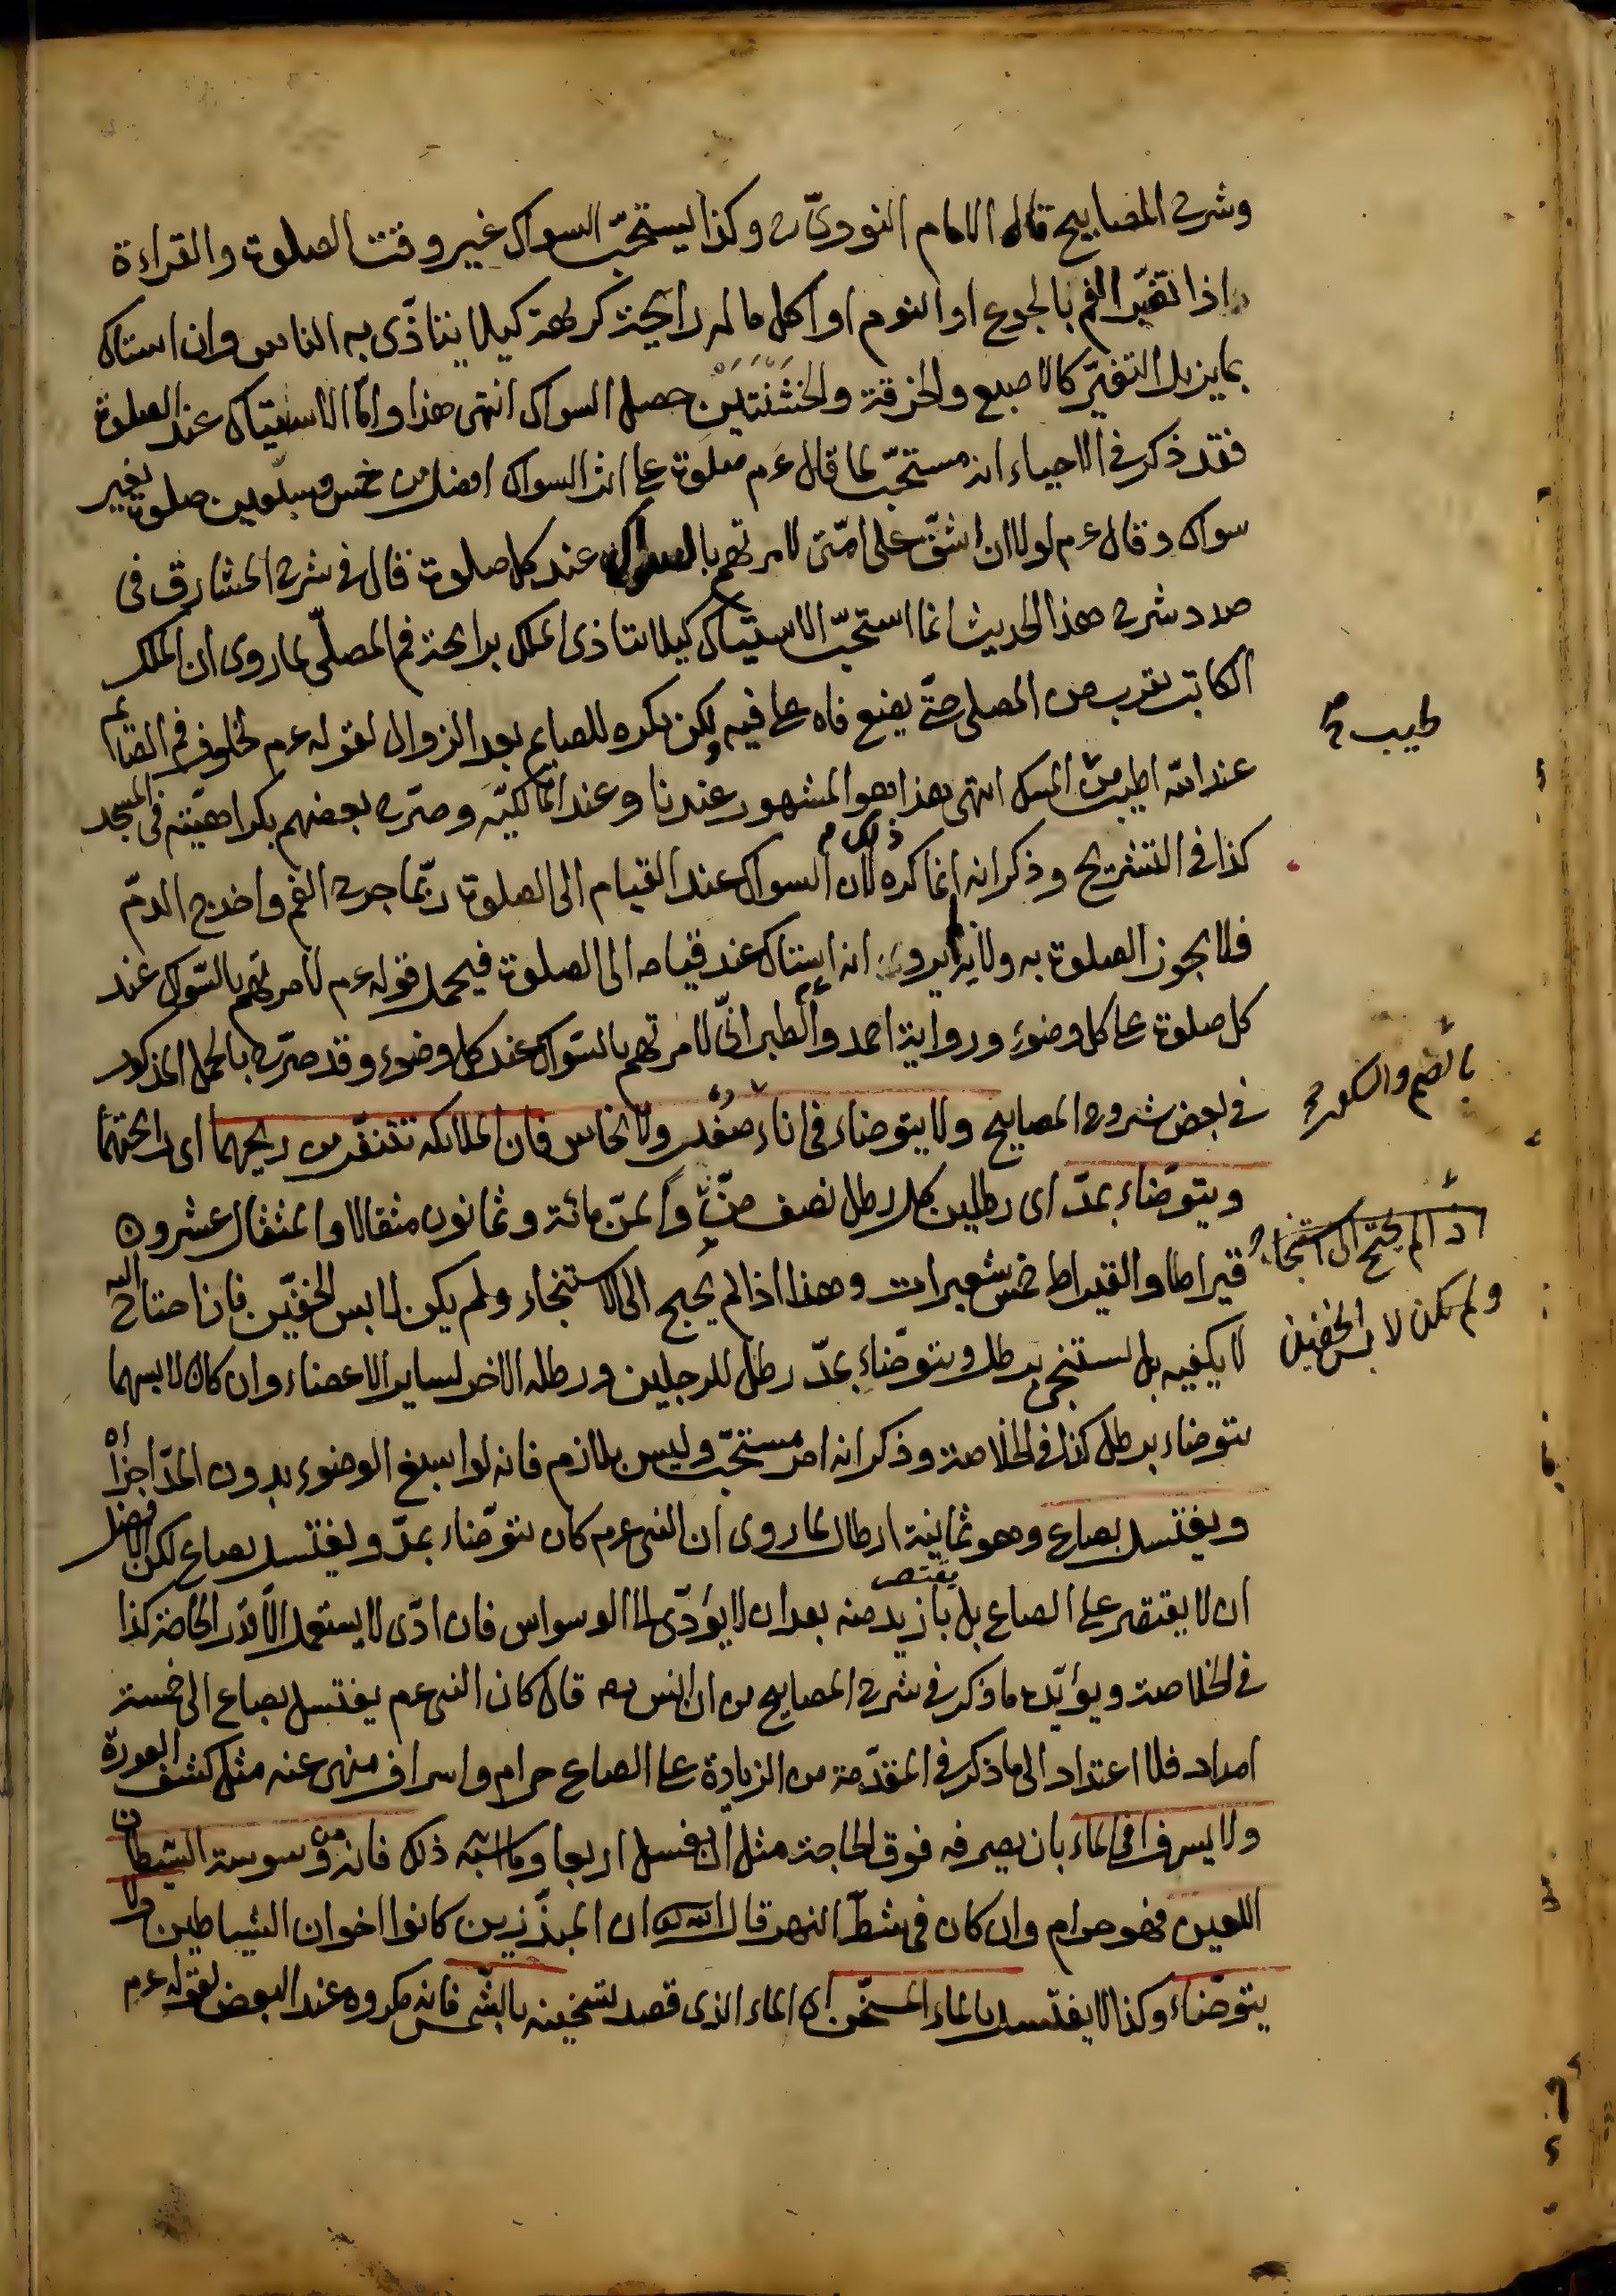 وشرح المصابيح قاله الامام النووىّ رح وكذا يستحبّ السواك غير وقت الصلوة والقراءة
اذا تغيّر الفم بالجوع او النوم او اكل ما له رايحة كريهة كيلا يتأذّى به الناس وان استاك
بما يزيل التغيّر كالاصبع والخرقة والخشنتين حصل السواك انتهى هذا وامّا الاستياك عند الصلوة
فقد ذكر فى الاحياء انه مستحبّ لما قال عم صلوة على اثر السواك افضل من خمس وسبعين صلوة بغير
سواك وقال عم لولا ان اشقّ على امّتى لامرتهم بالسواك عند كل صلوة قال فى شرح المشارق فى
صدد شرح هذا الحديث انما استحبّ الاستياك كيلا يتاذى الملك برايحة فم المصلّى لما روى ان الملك
الكاتب يقرب من المصلى حتّى يضع فاه على فيه ولكن يكره للصايم بعد الزوال لقوله عم لخلوف فم الصايم
عند الله اطيب من المسك انتهى هذا هو المشهور عندنا وعند المالكيّة وصرّح بعضهم بكراهيّته فى المسجد
كذا فى التشريح وذكر انه انما كره ذلك لان السواك عند القيام الى الصلوة ربّما جرح الفم واخرج الدمّ
فلا يجوز الصلوة به ولانه لم يرو انه عم استاك عند قيامه الى الصلوة فيحمل قوله عم لامرتهم بالسّواك عند
كل صلوة على كل وضوء ورواية احمد والطبرانىّ لامرتهم بالسّواك عند كل وضوء وقد صرّح بالحمل المذكور
فى بعض شروح المصابيح ولا يتوضاء فى اناء صُفْر ولا نحاس فان الملائكة تتنفّر من ريحهما اى رايحتهما
ويتوضّاء بمدّ اى رطلين كل رطل نصف منّ والمنّ مائة وثمانون مثقالا والمثقال عشرون
قيراطا والقيراط خمس شعيرات وهذا اذا لم يحتج الى الاستنجاء ولم يكن لابس الخفّين فاذا احتاج اليه
لا يكفيه بل يستنجى برطل ويتوضّاء بمدّ رطل للرجلين ورطله الاخر لساير الاعضاء وان كان لابسهما
يتوضاء برطل كذا فى الخلاصة وذكر انه امر مستحبّ وليس بلازم فانه لو اسبغ الوضوء بدون المدّ اجزأه
ويغتسل بصاع وهو ثمانية ارطال لما روى ان النبى عم كان يتوضّاء بمدّ ويغتسل بصاع لكن الافضل
ان لا يقتصر على الصاع بل يغتسل بازيد منه بعد ان لا يؤدّى الى الوسواس فان ادّى لا يستعمل الا قدر الحاجة كذا
فى الخلاصة ويؤيّده ما ذكر فى شرح المصابيح من ان انس رضه قال كان النبى عم يغتسل بصاع الى خمسة
امداد فلا اعتداد الى ما ذكر فى المقدّمة من الزيادة على الصاع حرام واسراف منهى عنه مثل كشف العورة
ولا يسرف فى الماء بان يصرفه فوق الحاجة مثل ان يغسل اربعا وما اشبه ذلك فانه من وسوسة الشيطان
اللعين فهو حرام وان كان فى شطّ النهر قال الله تع ان المبذّرين كانوا اخوان الشياطين ولا
يتوضّاء وكذا لا يغتسل بالماء المسخّن اى الماء الذى قصد تسخينه بالشّمس فانه مكروه عند البعض لقوله عم
طيب
بالضم والسكون
اذا لم يحتج الى استنجاء
ولم يكن لابس الخفين